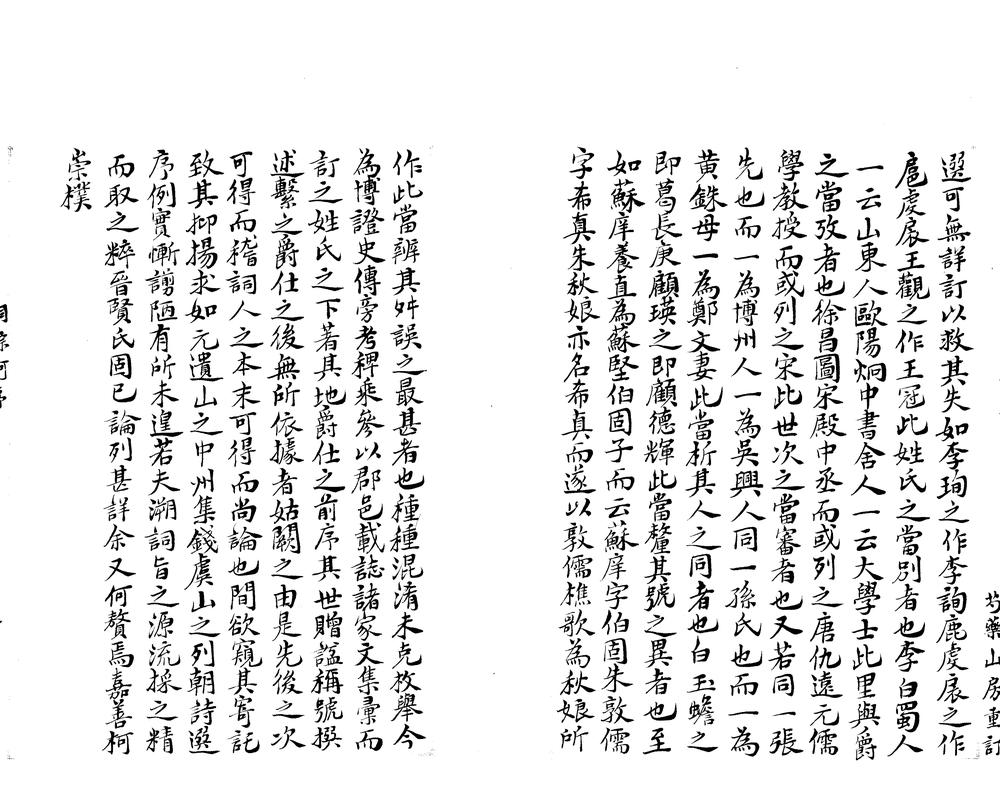 芍藥山房重訂
選可無詳訂以救其失如李珣之作李詢鹿虔扆之作
扈虔扆王觀之作王冠此姓氏之當別者也李白蜀人
一云山東人歐陽炯中書舍人一云大學士此里與爵
之當攷者也徐昌圖宋殿中丞而或列之唐仇遠元儒
學教授而或列之宋此世次之當審者也又若同一張
先也而一為博州人一為吳興人同一孫氏也而一為
黃銖母一為鄭文妻此當析其人之同者也白玉蟾之
即葛長庚顧瑛之即顧德輝此當釐其號之異者也至
如蘇庠養直為蘇堅伯固子而云蘇庠字伯固朱敦儒
字希真朱秋娘亦名希真而遂以敦儒樵歌為秋娘所
作此當辨其舛誤之最甚者也種種混淆未克枚舉今
為博證史傳旁考稗乘參以郡邑載誌諸家文集彙而
訂之姓氏之下著其地爵仕之前序其世贈謚稱號撰
述繫之爵仕之後無所依據者姑闕之由是先後之次
可得而稽詞人之本末可得而尚論也間欲窺其寄託
致其抑揚求如元遺山之中州集錢虞山之列朝詩選
序例實慚謭陋有所未遑若夫溯詞旨之源流採之精
而取之粹晉賢氏固已論列甚詳余又何贅焉嘉善柯
崇樸